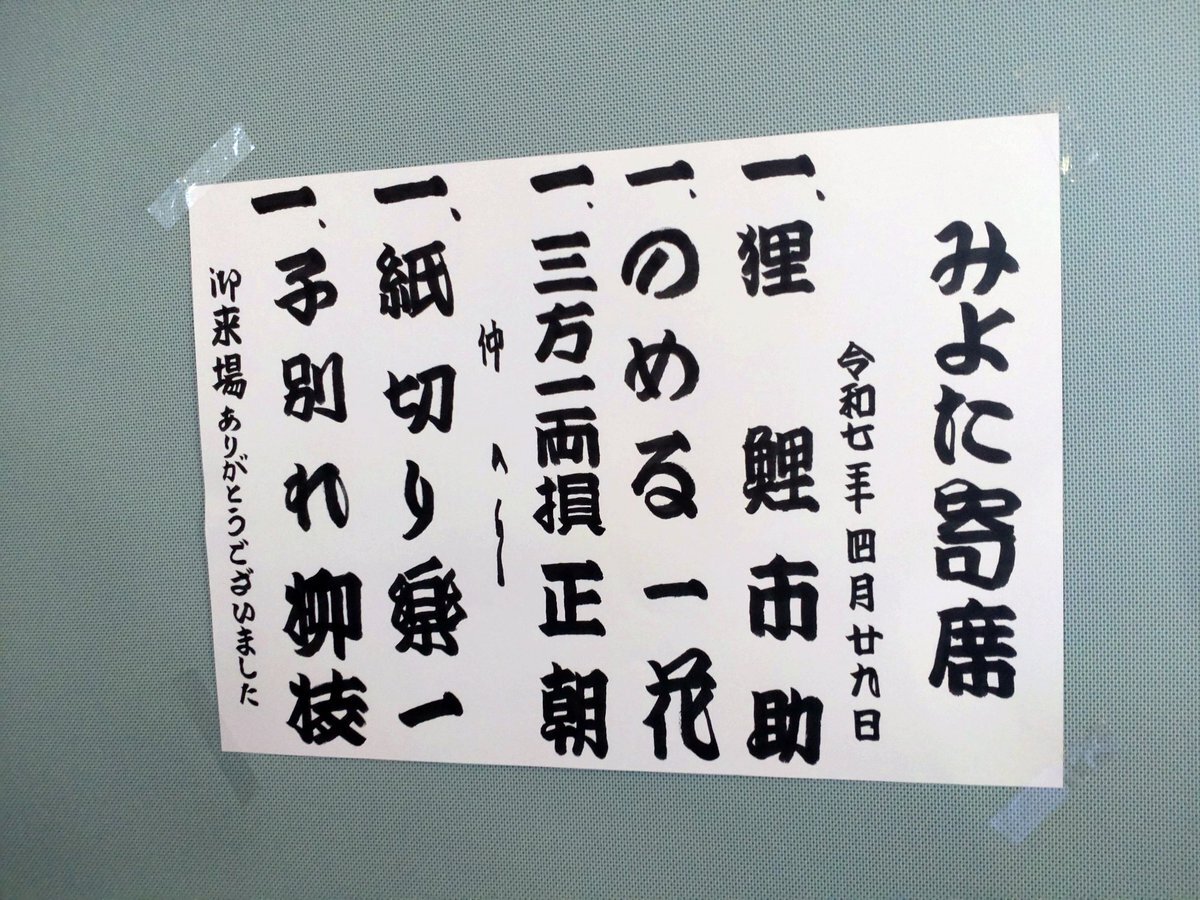 みよた寄席
令和七年四月廿九日
一、狸 鯉市助
一、のめる 一花
一、三方一両損 正朝
仲入り
一、紙切り 楽一
一、子別れ 柳枝
御来場ありがとうございました